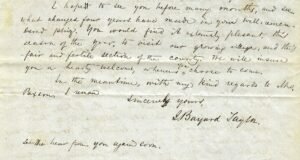 I hope to see you before many months, and see
what changes four years have made in your well-remem-
bered
You would find it extremely pleasant, this
season of the year, to visit our growing village, and this
fair and fertile section of the country. We will insure
you a hearty welcome, whenever you choose to come.
In the meantime, with my kind regards to Mrs.
I remain
Sincerely yours,
J. Bayard Taylor.
hear from you again soon.